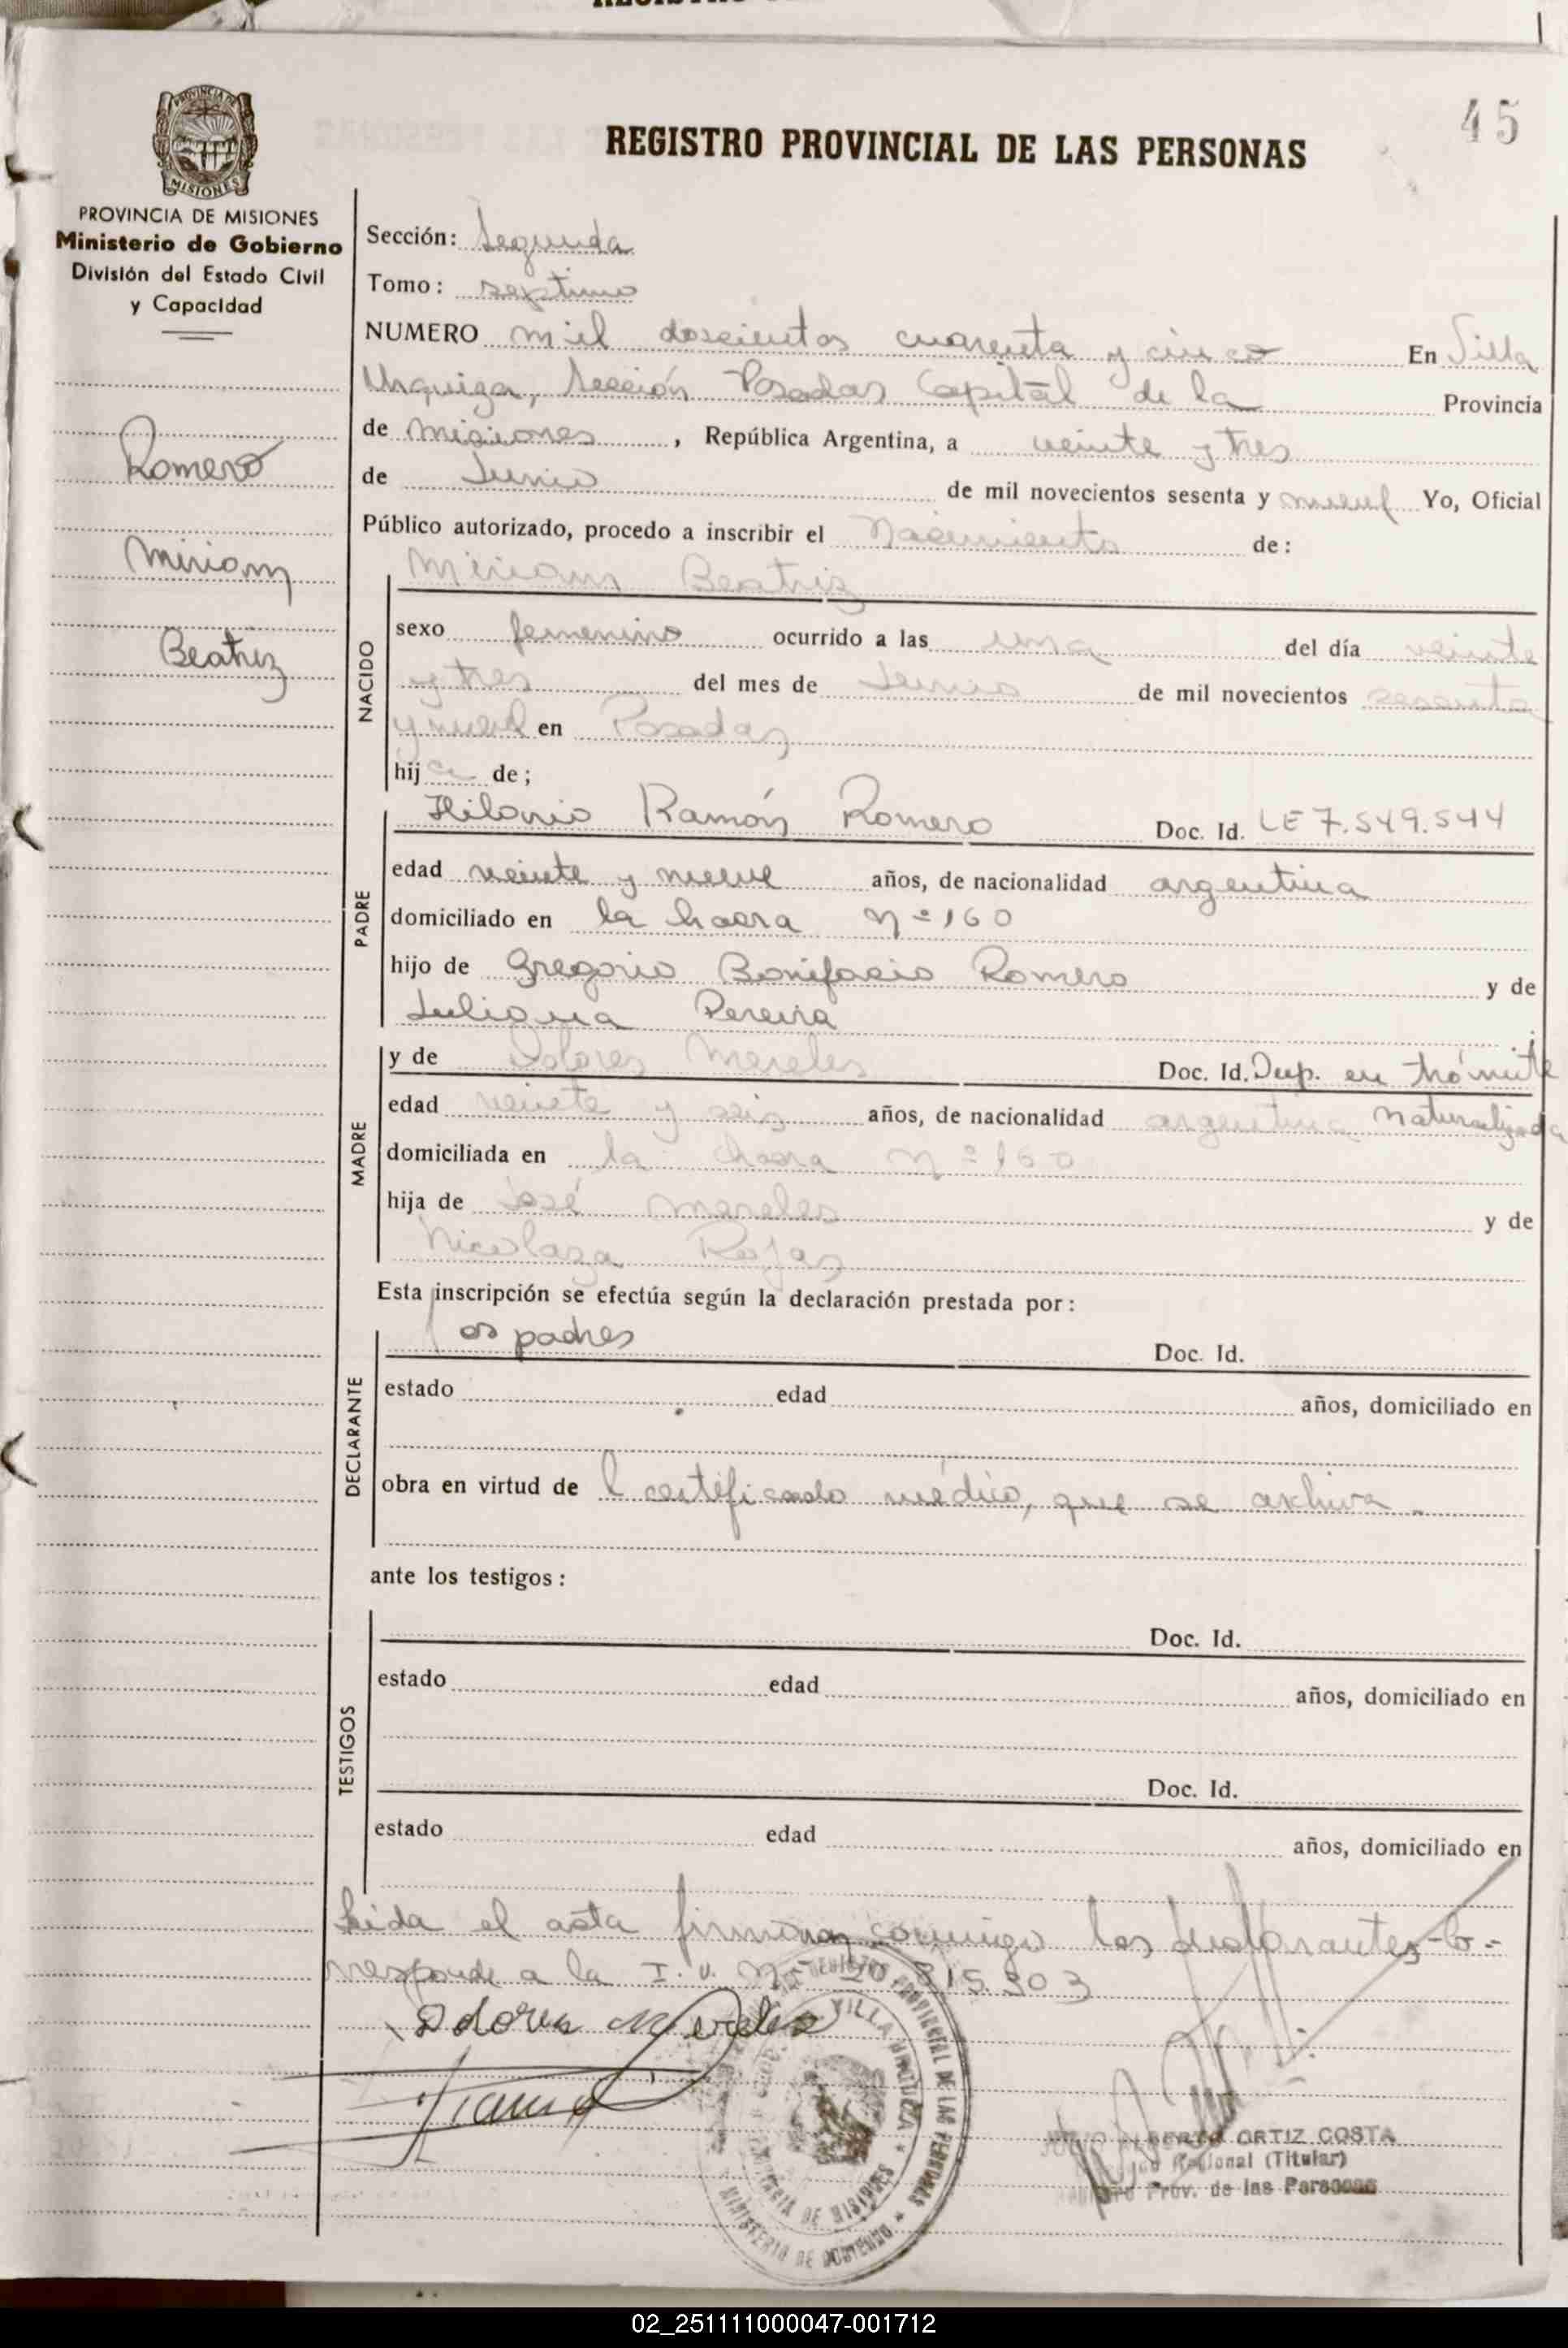 45
REGISTRO PROVINCIAL DE LAS PERSONAS
PROVINCIA DE MISIONES
Ministerio de Gobierno
División del Estado Civil
y Capacidad
Romero
Miriam
Beatriz
Sección: Segunda
Tomo: septimo
NUMERO mil doscientos cuarenta y cinco En Villa
Urquiza, Sección Posadas Capital de la Provincia
de misiones, República Argentina, a veinte y tres
de Junio de mil novecientos sesenta y nueve Yo, Oficial
Público autorizado, procedo a inscribir el Nacimiento de:
NACIDO
Miriam Beatriz
sexo femenino ocurrido a las una del día veinte
y tres del mes de Junio de mil novecientos sesenta
y nueve en Posadas
hija de;
PADRE
Hilario Ramón Romero Doc. Id. LE 7.549.544
edad veinte y nueve años, de nacionalidad argentina
domiciliado en la chacra Nº 160
hijo de Gregorio Bonifacio Romero y de
Juliana Pereira
MADRE
y de Dolores Mereles Doc. Id. Dup. en trámite
edad veinte y seis años, de nacionalidad argentina naturalizada
domiciliada en la chacra Nº 160
hija de José Mereles y de
Nicolaza Rojas
Esta inscripción se efectúa según la declaración prestada por:
DECLARANTE
los padres Doc. Id.
estado edad años, domiciliado en
obra en virtud de l certificado médico, que se archiva.
ante los testigos:
TESTIGOS
Doc. Id.
estado edad años, domiciliado en
Doc. Id.
estado edad años, domiciliado en
Leida el acta firman conmigo los declarantes-Co-
rresponde a la I. U. Nº 20 815.903
Dolores Mereles
VILLA URQUIZA
REGISTRO PROVINCIAL DE LAS PERSONAS
PROVINCIA DE MISIONES
MINISTERIO DE GOBIERNO
ALBERTO ORTIZ COSTA
Regional (Titular)
Prov. de las Personas
02_251111000047-001712